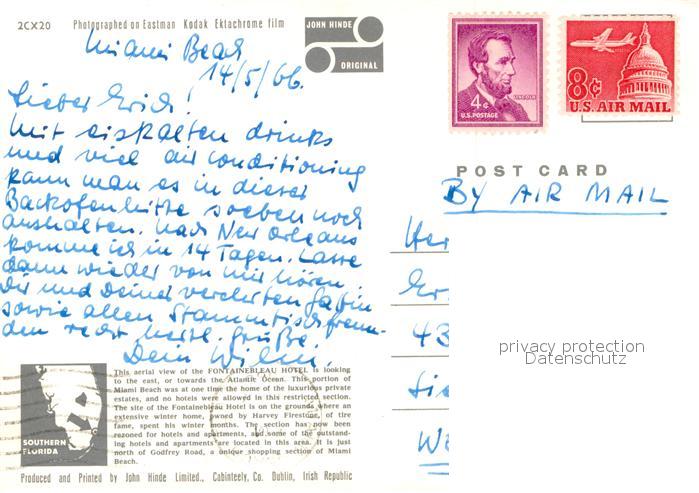 2CX20 Photographed on Eastman Kodak Ektachrome film
JOHN HINDE
ORIGINAL
Miami Beach
14/5/66.
Lieber Erich!
Mit eiskalten drinks
und viel air conditioning
kann man es in dieser
Backofenhitze soeben noch
aushalten. Nach New Orleans
komme ich in 14 Tagen. Lasse
dann wieder von mir hören.
Dir und Deiner verehrten Gattin
sowie allen Stammtischfreun-
den recht herzl. Grüße.
Dein Wilm.
LINCOLN
4¢
U.S. POSTAGE
8¢
U.S. AIR MAIL
POST CARD
BY AIR MAIL
Her
Er
43
privacy protection
Datenschutz
SOUTHERN
FLORIDA
This aerial view of the FONTAINEBLEAU HOTEL is looking
to the east, or towards the Atlantic Ocean. This portion of
Miami Beach was at one time the home of the luxurious private
estates, and no hotels were allowed in this restricted section.
The site of the Fontainebleau Hotel is on the grounds where an
extensive winter home, owned by Harvey Firestone, of tire
fame, spent his winter months. The section has now been
rezoned for hotels and apartments, and some of the outstand-
ing hotels and apartments are located in this area. It is just
north of Godfrey Road, a unique shopping section of Miami
Beach.
Produced and Printed by John Hinde Limited., Cabinteely, Co. Dublin, Irish Republic